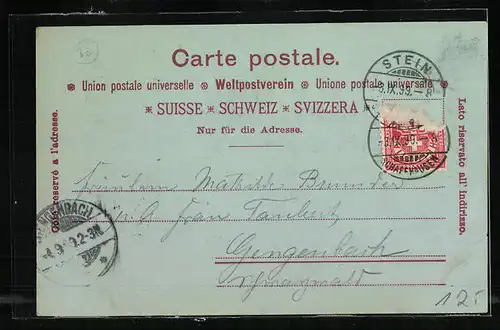 Carte postale.
Union postale universelle ⊛ Weltpostverein ⊛ Unione postale universale
* SUISSE * SCHWEIZ * SVIZZERA *
Nur für die Adresse.
Côté réservé à l'adresse.
Lato riservato all' indirizzo.
STEIN
9.IX.99.
SCHAFFHAUSEN
GENGENBACH
Fräulein Mathilde
Frau Taubert
Gengenbach
Schwarzwald
12.-